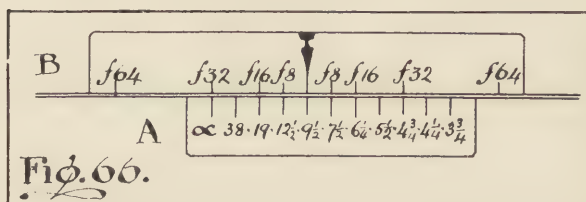 B
f64 f32 f16 f8 f8 f16 f32 f64
A
∝ 38·19·12½·9½·7½·6¼·5½·4¾·4¼·3¾
Fig. 66.